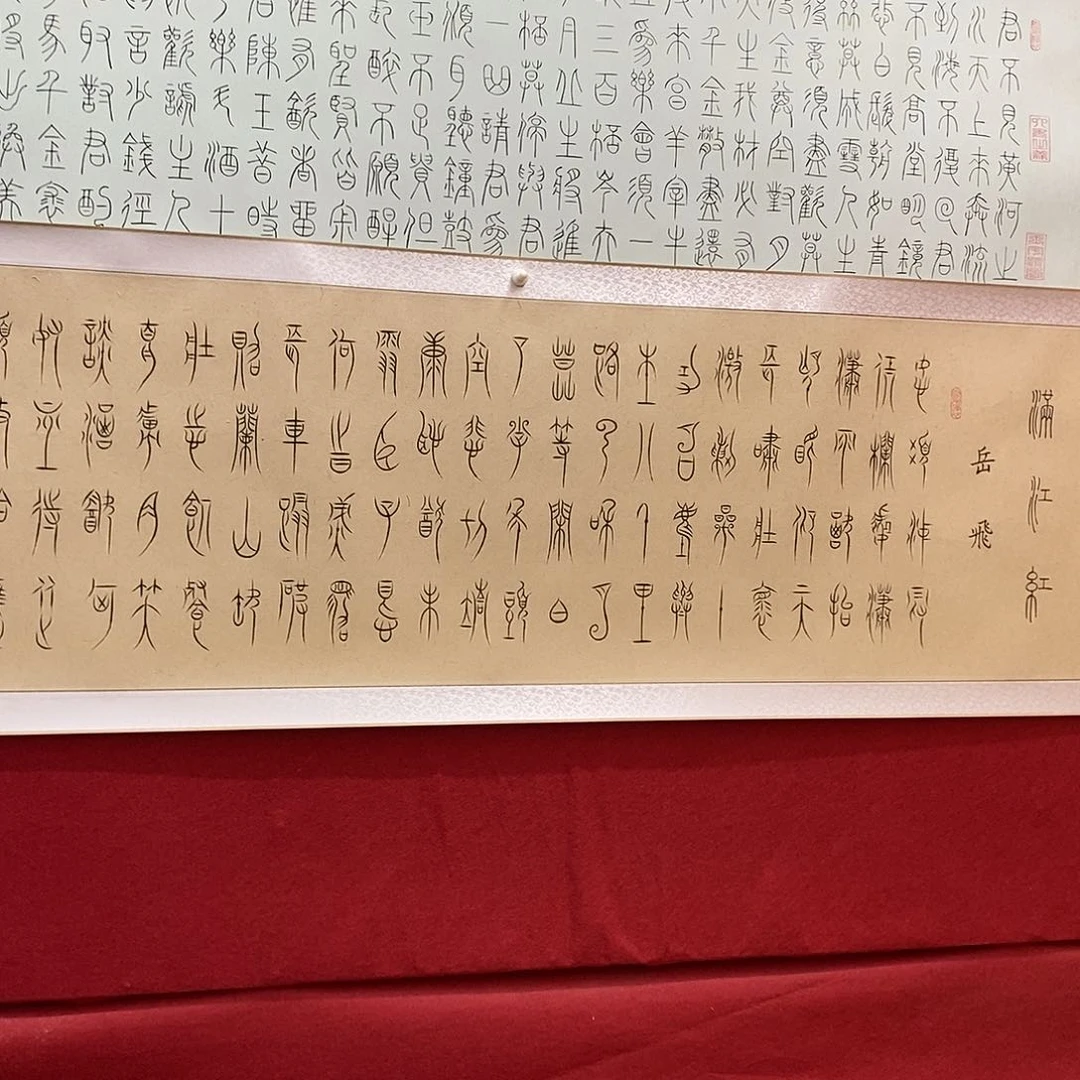 君不見黃河之
水天上來奔流
到海不復回君
不見高堂明鏡
悲白髮朝如青
絲莫成雪人生
得意須盡歡莫
使金尊空對月
天生我材必有
千金散盡還
復來烹羊宰牛
且為樂會須一
三百桮岑夫
丹丘生將進
桮莫停與君
一曲請君為
傾耳聽鐘鼓
玉不足貴但
長醉不願醒
來聖賢皆宗
惟有飲者留
名陳王昔時
樂斗酒十
歡謔主人
為言少錢徑
沽取對君酌
馬千金裘
將出換美
滿江紅
岳飛
怒髮衝冠
憑欄處瀟
瀟雨歇抬
望眼仰天
長嘯壯懷
激烈三十
功名塵與
土八千里
路雲和月
莫等閒白
了少年頭
空悲切靖
康恥猶未
雪臣子恨
何時滅駕
長車踏破
賀蘭山缺
壯志飢餐
胡虜肉笑
談渴飲匈
奴血待從
頭收拾舊